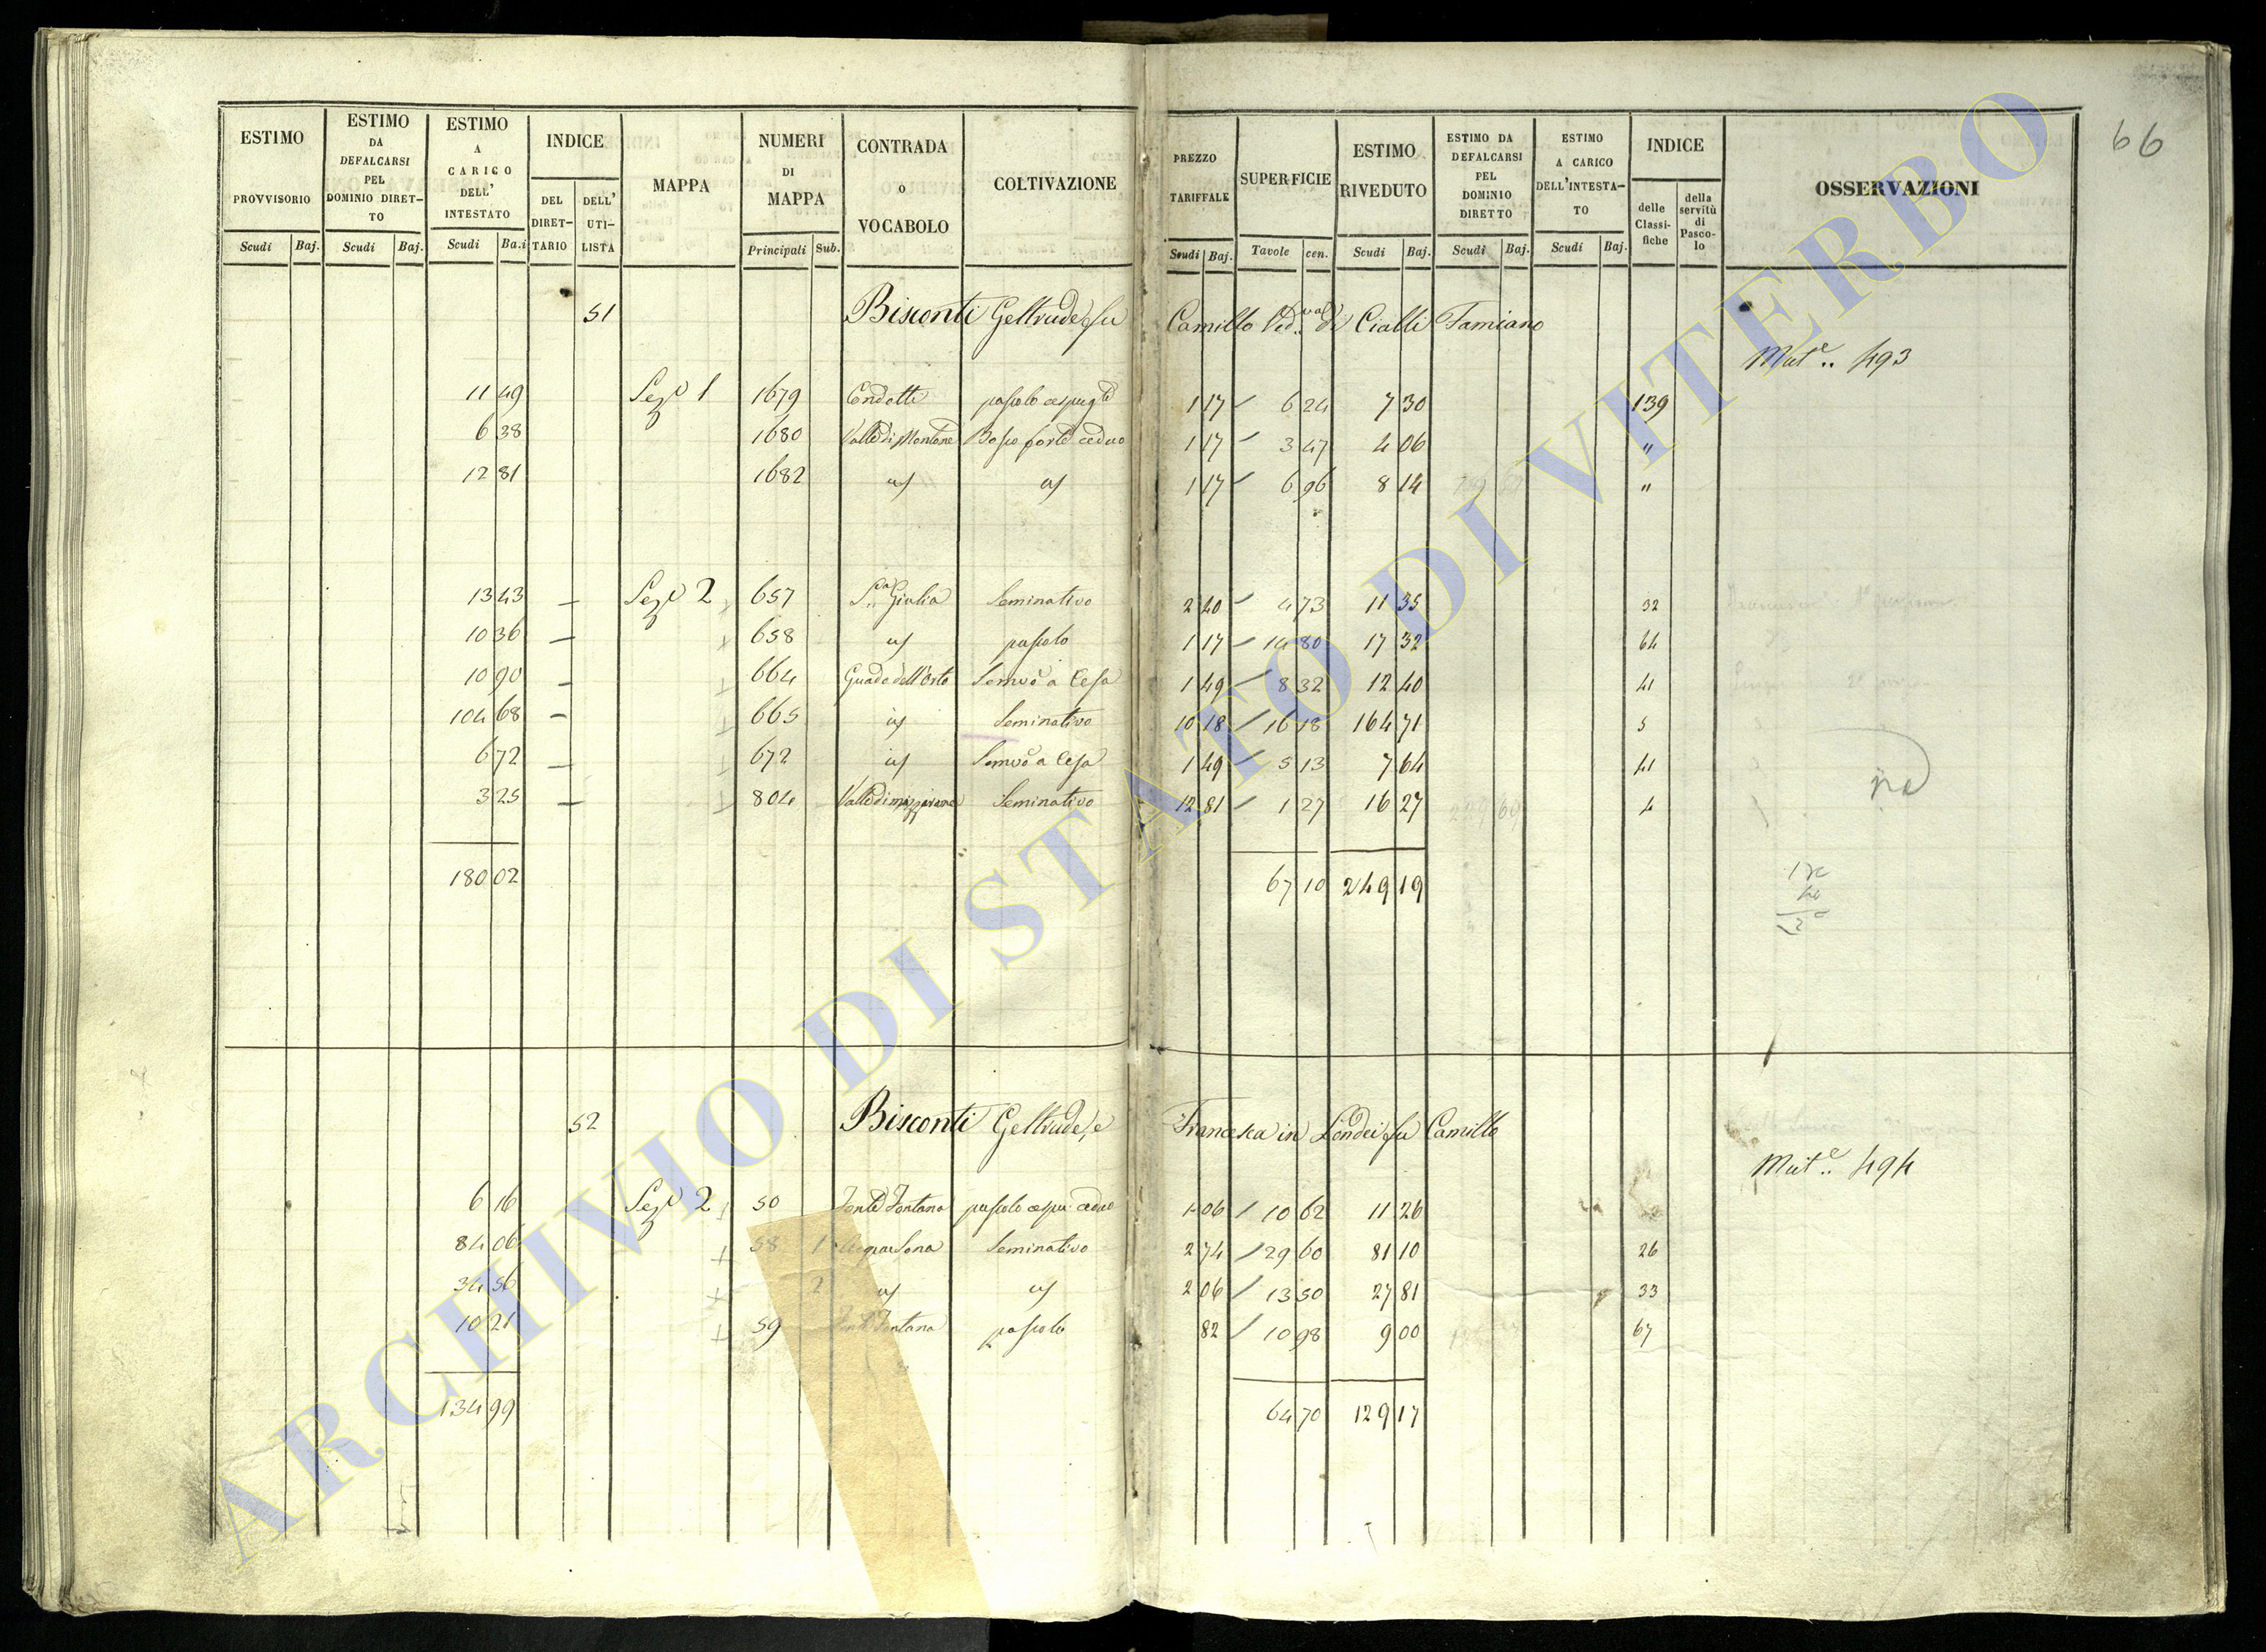 66
ESTIMO PROVVISORIO | ESTIMO DA DEFALCARSI PEL DOMINIO DIRETTO | ESTIMO A CARICO DELL' INTESTATO | INDICE | MAPPA | NUMERI DI MAPPA | CONTRADA O VOCABOLO | COLTIVAZIONE | PREZZO TARIFFALE | SUPERFICIE | ESTIMO RIVEDUTO | ESTIMO DA DEFALCARSI PEL DOMINIO DIRETTO | ESTIMO A CARICO DELL'INTESTATO | INDICE | OSSERVAZIONI
Scudi Baj. | Scudi Baj. | Scudi Ba.i | DEL DIRETTARIO | DELL' UTILISTA | Principali Sub. | Scudi Baj. | Tavole cen. | Scudi Baj. | Scudi Baj. | Scudi Baj. | delle Classifiche | della servitù di Pascolo
51 Bisconti Geltrude fu Camillo Ved.va di Cialli Tamiano
Mut.e 493
11 49 Sez. 1 1679 Condotti pascolo cespug.to 1 17 6 24 7 30 139
6 38 1680 Valle di Montone Bosco forte ceduo 1 17 3 47 4 06 "
12 81 1682 id id 1 17 6 96 8 14 "
13 43 — Sez. 2 657 S.a Giulia Seminativo 2 40 4 73 11 35 32
10 36 — 658 id pascolo 1 17 14 80 17 32 64
10 90 — 664 Guado dell'Orto Semvo a Cesa 1 49 8 32 12 40 41
104 68 — 665 id Seminativo 10 18 16 18 164 71 5
6 72 — 672 id Semvo a Cesa 1 49 5 13 7 64 41
3 25 — 804 Seminativo 12 81 1 27 16 27 4
180 02 67 10 249 19
52 Bisconti Geltrude, e Francesca in Londei fu Camillo
Mut.e 494
6 16 Sez. 2 50 Fonte Fontana pascolo cespu. ceduo 1 06 10 62 11 26
84 06 58 1 Seminativo 2 74 29 60 81 10 26
34 56 2 id id 2 06 13 50 27 81 33
10 21 59 Fontana pascolo 82 10 98 9 00 67
134 99 64 70 129 17
ARCHIVIO DI STATO DI VITERBO